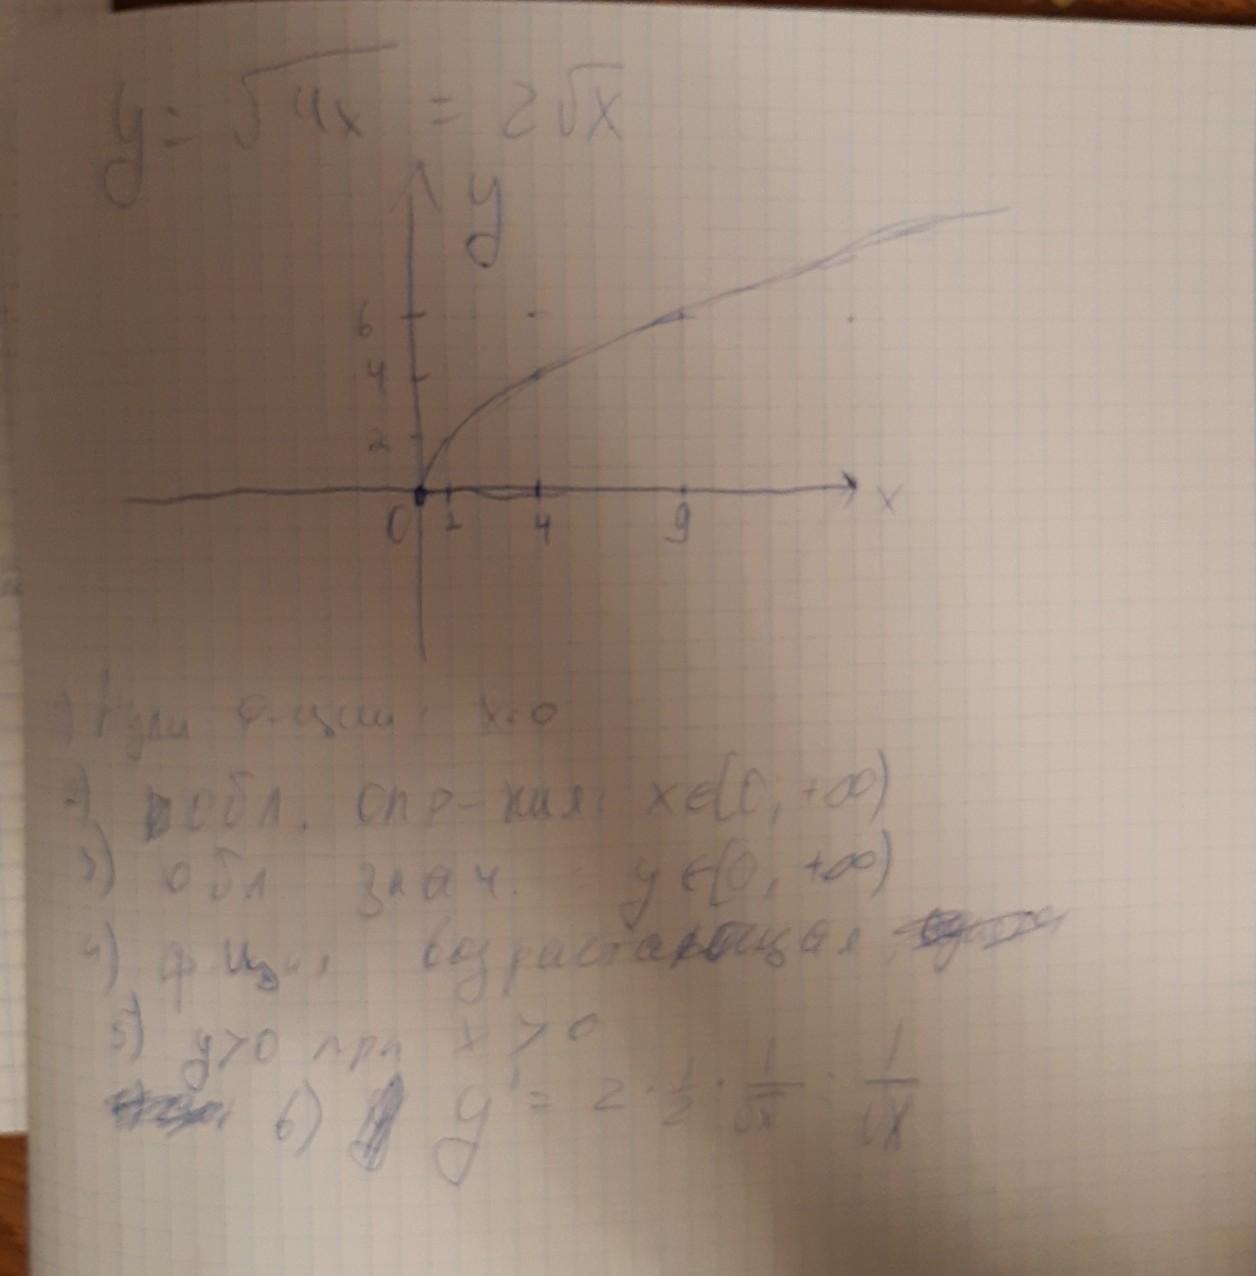 y = √4x = 2√x
y
6
4
2
0 1 4 9 x
1) Нули ф-ции: x=0
2) обл. опр-ния: x∈[0, +∞)
3) обл. знач. : y∈[0, +∞)
4) ф-ция возрастающая
5) y>0 при x>0
6) y' = 2·1/2·1/√x = 1/√x